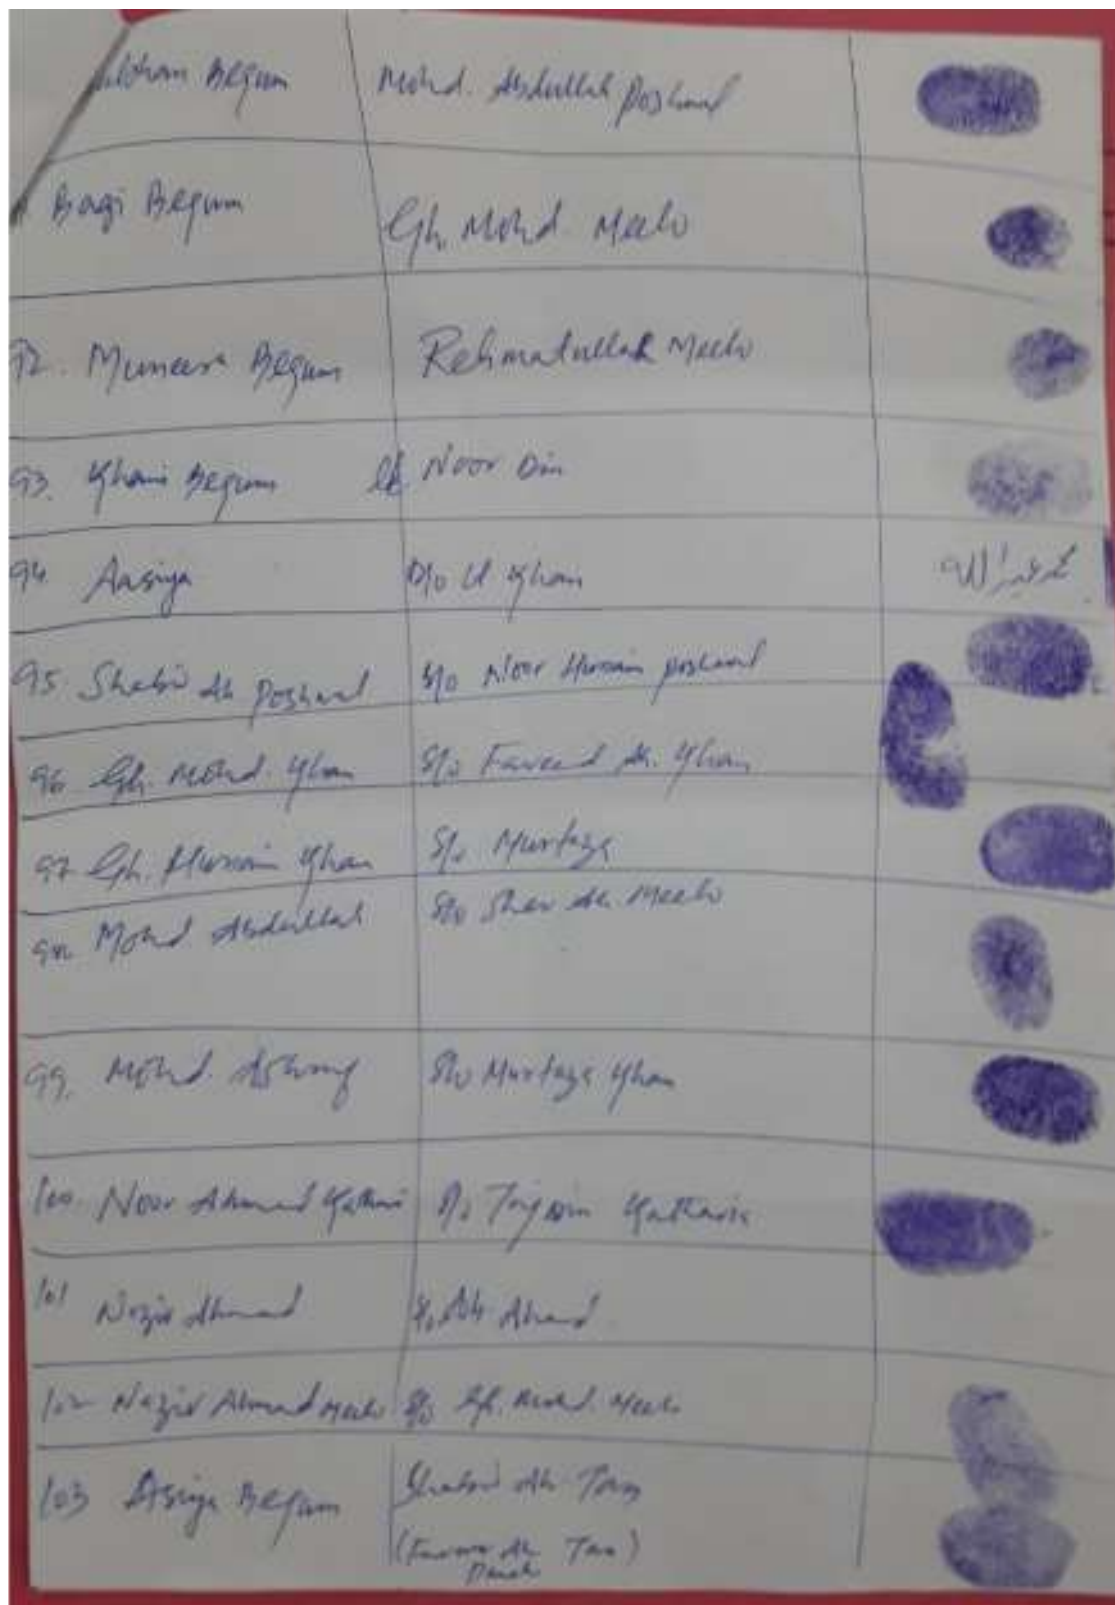 Begum Mohd. Abdullah Poshwal
Bagi Begum Gh. Mohd. Meelo
92. Muneera Begum Rehmatullah Meelo
93. Khani Begum Noor Din
94 Aasiya D/o Khan
95. Shabir Ah Poshwal S/o Noor Hussain poshwal
96. Gh. Mohd. Khan S/o Fareed Ah. Khan
97. Gh. Hussain Khan S/o Murtaza
98. Mohd Abdullah S/o Sher Ah Meelo
99. Mohd. Ashraf S/o Murtaza Khan
100. Noor Ahmad S/o Kataria
101 Nazir Ahmad S/o Ab. Ahad
102 Nazir Ahmad Meelo S/o Gh. Mohd. Meelo
103 Asiya Begum Shabir Ah